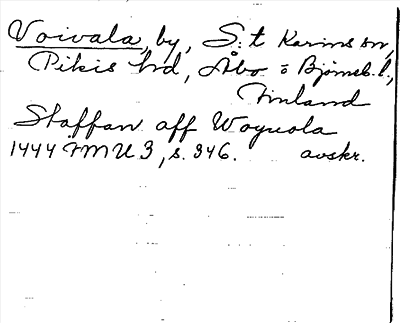 Voivala, by, S:t Karins sn,
Pikis hd, Åbo o Björneb. l.,
Finland
Staffan aff Woyuola
1444 FMU 3, s. 346. avskr.